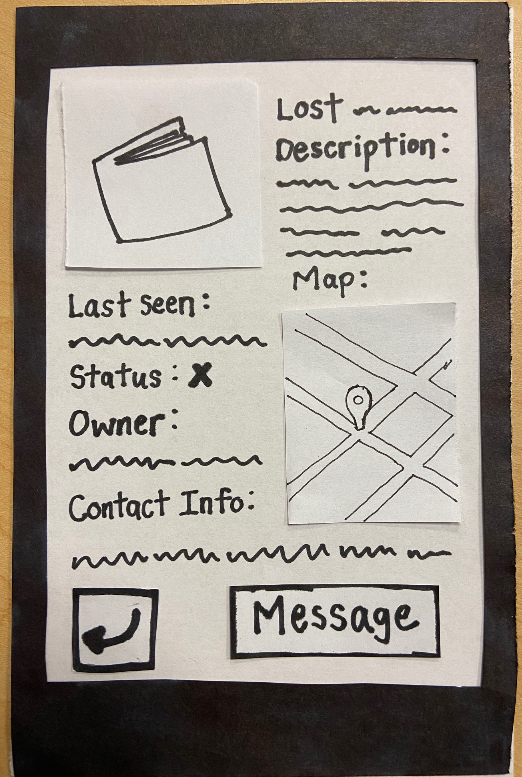 Lost
Description:
Map:
Last seen:
Status: X
Owner:
Contact Info:
Message